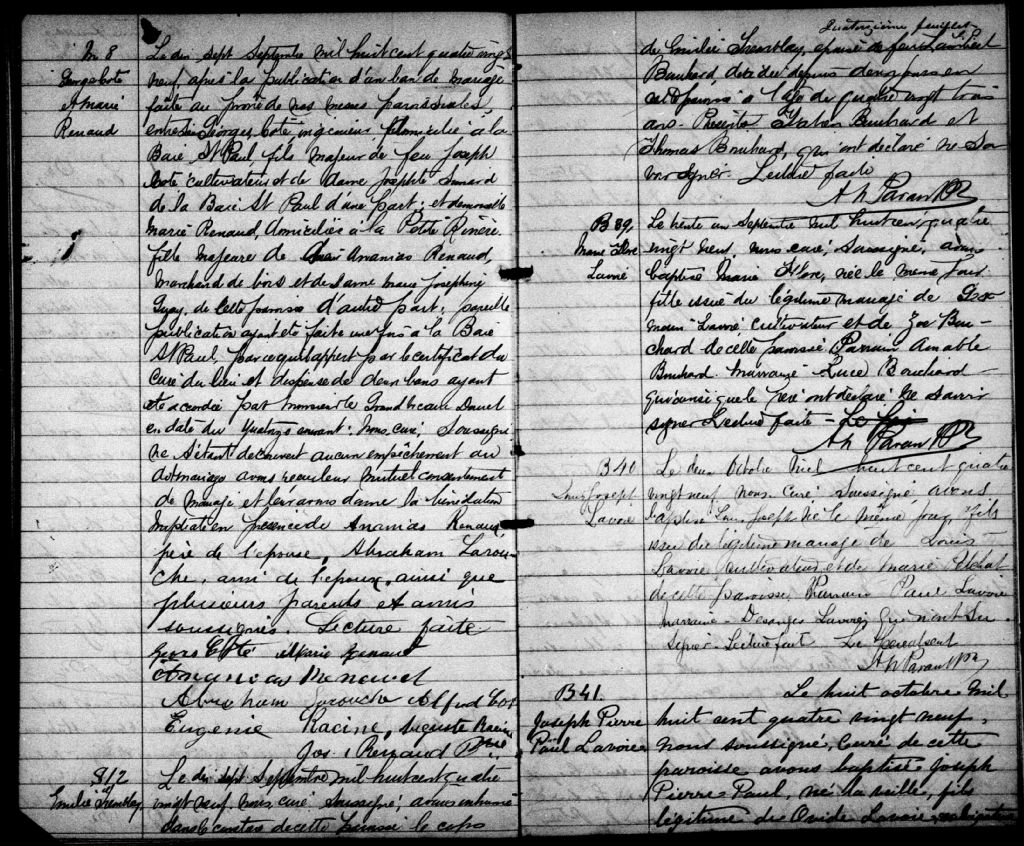 M 8
George Coté
et Marie
Renaud
Le dix sept Septembre mil huit cent quatre vingt
neuf, après la publication d'un ban de mariage
faite au prone de nos messes paroissiales,
entre Sieur Georges Coté ingenieur domicilié à la
Baie St Paul, fils majeur de feu Joseph
Coté cultivateur et de Dame Josephte Simard
de la Baie St Paul d'une part; et demoiselle
Marie Renaud, domiciliée à la Petite Rivière
fille majeure de Ananias Renaud,
Marchand de bois et de Dame Marie Josephine
Guay, de cette paroisse d'autre part; pareille
publication ayant été faite une fois à la Baie
St Paul, parce qu'il appert par le certificat du
curé du lieu et dispense de deux bans ayant
été accordée par Monsieur le Grand Vicaire
en date du courant; nous, curé, soussigné
ne s'étant découvert aucun empêchement au
dit mariage avons reçu leur mutuel consentement
de mariage et leur avons donné la bénédiction
nuptiale en présence de Ananias Renaud
père de l'épouse, Abraham Larou-
che, ami de l'époux, ainsi que
plusieurs parents et amis
soussignés. Lecture faite
Coté Marie Renaud
Ananias Renaud
Abraham Larouche Alfred
Eugénie Racine, Auguste Racine
Jos Renaud Ptre
S 12
Emilie Tremblay
Le dix sept Septembre mil huit cent quatre
vingt neuf, nous, curé soussigné, avons inhumé
dans le cimetière de cette paroisse le corps
Quatorzième feuillet
de Emilie Tremblay, épouse de feu
Bouchard décédée depuis deux jours en
cette paroisse à l'age de quatre vingt trois
ans. Présents Bouchard et
Thomas Bouchard, qui ont déclaré ne sa-
voir signer. Lecture faite
A h Paran Ptr
B 39
Marie
Lavoie
Le trente un Septembre mil huit cent quatre
vingt neuf, nous curé, soussigné, avons
baptisé Marie née le même jour
fille issue du légitime mariage de
Lavoie cultivateur et de Zoé Bou-
chard de cette paroisse. Parrain Amable
Bouchard. Marraine Luce Bouchard
qui ainsi que le père ont déclaré ne savoir
signer Lecture faite
A h Paran Ptr
B 40
Louis Joseph
Lavoie
Le deux Octobre mil huit cent quatre
vingt neuf nous curé soussigné, avons
baptisé Louis Joseph né le même jour, fils
issu du légitime mariage de Louis
Lavoie cultivateur et de Marie
de cette paroisse Parrain Paul Lavoie
marraine Desanges Lavoie qui n'ont su
signer Lecture faite Le père absent
A h Paran Ptr
B 41.
Joseph Pierre
Paul Lavoie
Le huit octobre mil
huit cent quatre vingt neuf,
nous soussigné, Curé de cette
paroisse avons baptisé Joseph
Pierre-Paul, né la veille, fils
légitime de Ovide Lavoie